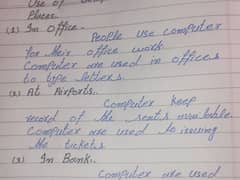 Use of
Places.
(1) In Office.
People use computer
for their office work
Computer are used in offices
to type letters.
(2) At Airports.
Computer keep
record of the seats available
Computer are used to issuing
the tickets.
(3) In Bank.
Computer are used